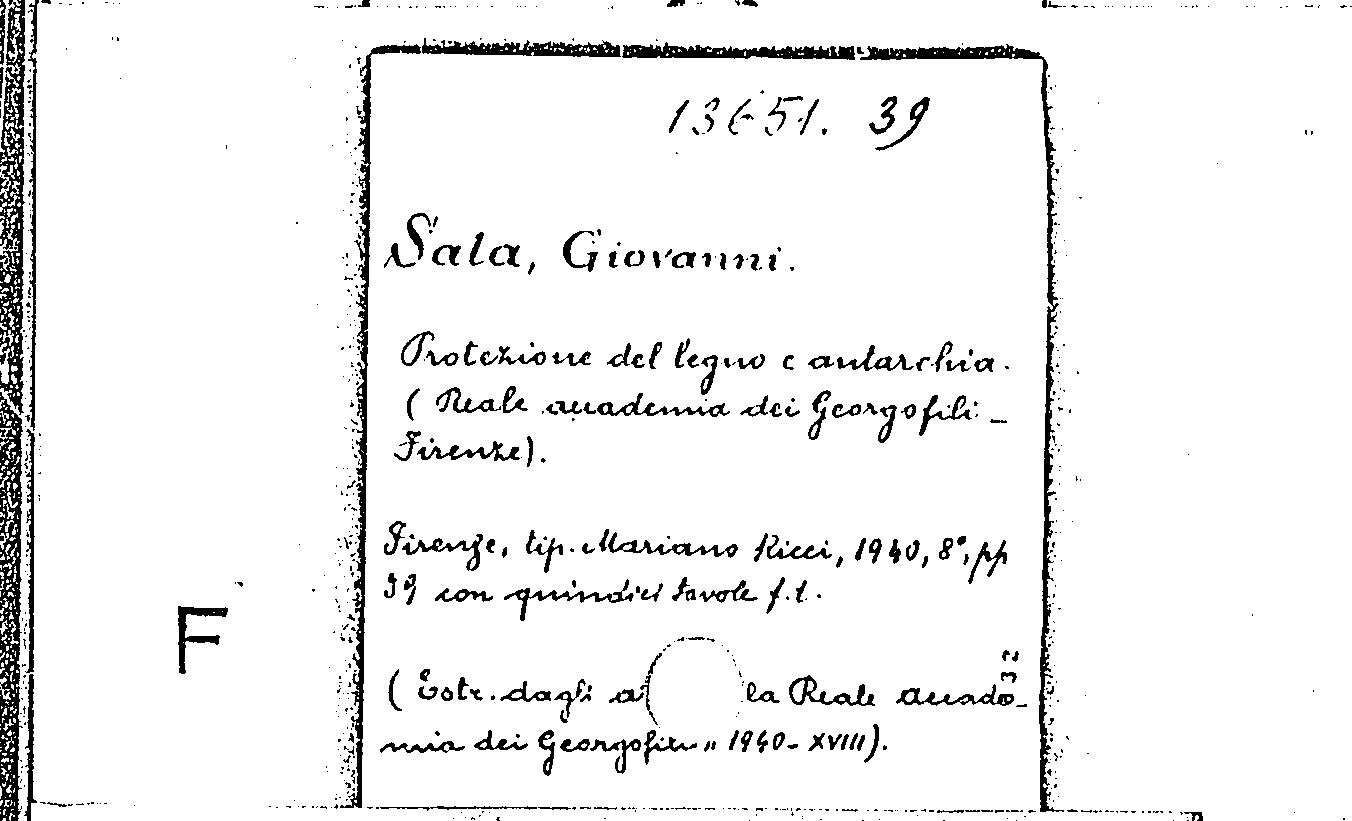 13651. 39
Sala, Giovanni.
Protezione del legno e autarchia.
( Reale accademia dei Georgofili -
Firenze).
Firenze, tip. Mariano Ricci, 1940, 8°, pp
39 con quindici tavole f.t.
32
( Estr. dagli la Reale accade-
mia dei Georgofili" 1940-XVIII).
F